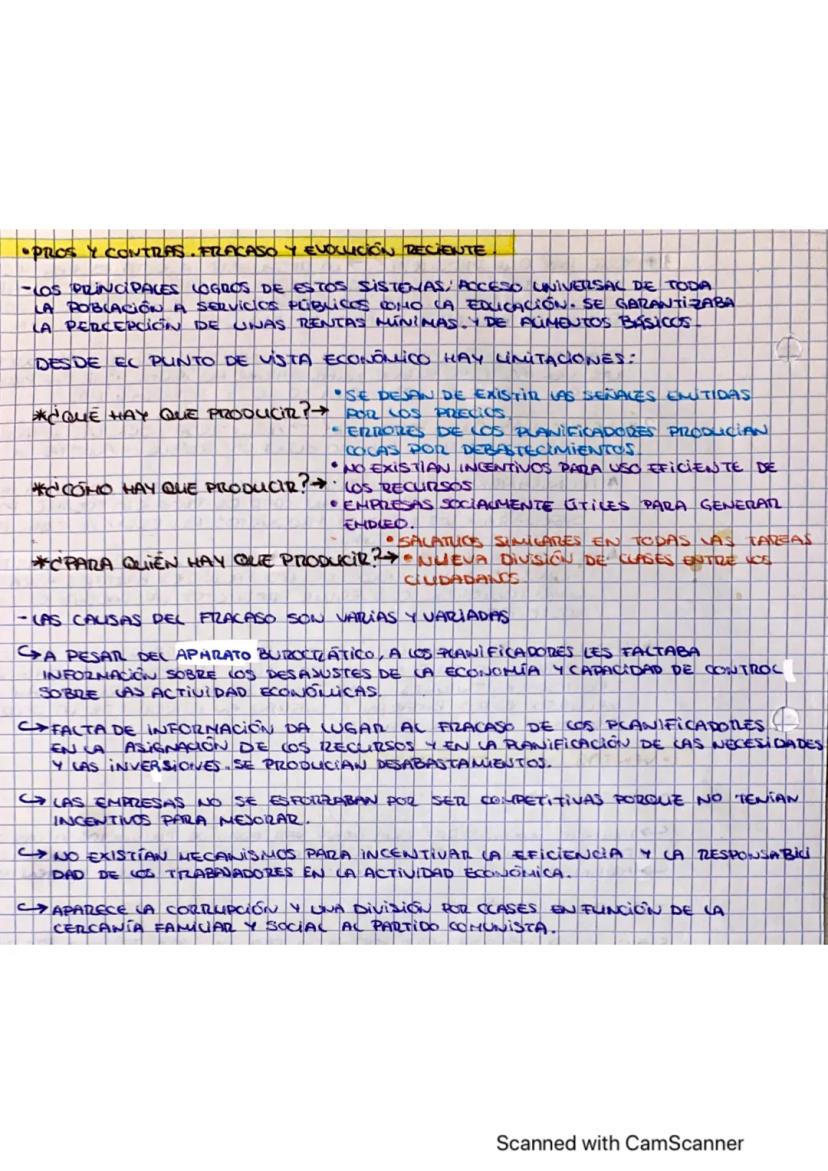 • PROS Y CONTRAS. FRACASO Y EVOLUCIÓN RECIENTE.
- LOS PRINCIPALES LOGROS DE ESTOS SISTEMAS: ACCESO UNIVERSAL DE TODA
LA POBLACIÓN A SERVICIOS PÚBLICOS COMO LA EDUCACIÓN. SE GARANTIZABA
LA PERCEPCIÓN DE UNAS RENTAS MÍNIMAS. Y DE ALIMENTOS BÁSICOS.
DESDE EL PUNTO DE VISTA ECONÓMICO HAY LIMITACIONES:
• SE DEJAN DE EXISTIR LAS SEÑALES EMITIDAS
*¿QUÉ HAY QUE PRODUCIR? → POR LOS PRECIOS.
• ERRORES DE LOS PLANIFICADORES PRODUCIAN
COLAS POR DEBASTECIMIENTOS
• NO EXISTÍAN INCENTIVOS PARA USO EFICIENTE DE
*¿CÓMO HAY QUE PRODUCIR? → LOS RECURSOS
• EMPRESAS SOCIALMENTE ÚTILES PARA GENERAR
EMPLEO.
• SALARIOS SIMILARES EN TODAS LAS TAREAS
*¿PARA QUIÉN HAY QUE PRODUCIR? → • NUEVA DIVISIÓN DE CLASES ENTRE LOS
CIUDADANOS
- LAS CAUSAS DEL FRACASO SON VARIAS Y VARIADAS
↪ A PESAR DEL APARATO BUROCRÁTICO, A LOS PLANIFICADORES LES FALTABA
INFORMACIÓN SOBRE LOS DESAJUSTES DE LA ECONOMÍA Y CAPACIDAD DE CONTROL
SOBRE LAS ACTIVIDAD ECONÓMICAS.
↪ FALTA DE INFORMACIÓN DA LUGAR AL FRACASO DE LOS PLANIFICADORES
EN LA ASIGNACIÓN DE LOS RECURSOS Y EN LA PLANIFICACIÓN DE LAS NECESIDADES
Y LAS INVERSIONES. SE PRODUCIAN DESABASTAMIENTOS.
↪ LAS EMPRESAS NO SE ESFORZABAN POR SER COMPETITIVAS PORQUE NO TENÍAN
INCENTIVOS PARA MEJORAR.
↪ NO EXISTÍAN MECANISMOS PARA INCENTIVAR LA EFICIENCIA Y LA RESPONSABILI
DAD DE LOS TRABAJADORES EN LA ACTIVIDAD ECONÓMICA.
↪ APARECE LA CORRUPCIÓN Y UNA DIVISIÓN POR CLASES EN FUNCIÓN DE LA
CERCANÍA FAMILIAR Y SOCIAL AL PARTIDO COMUNISTA.
Scanned with CamScanner